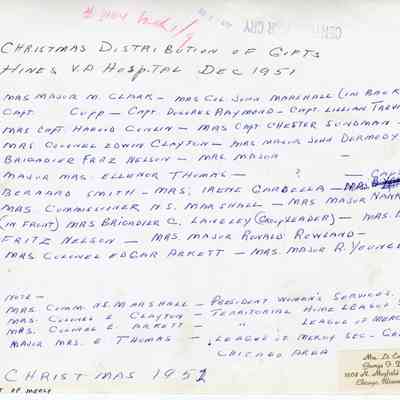 CHRISTMAS DISTRIBUTION OF GIFTS
HINES V.A HOSPITAL DEC 1951
MRS MAJOR M. CLARK - MRS COL JOHN MARSHALL (IN BACK
CAPT. CUPP - CAPT DOLORES RAYMOND - CAPT. LILLIAN
MRS CAPT. HAROLD CONLIN - MRS CAPT CHESTER SUNDMAN -
MRS COLONEL EDWIN CLAYTON - MRS MAJOR JOHN DERMODY
BRIGADIER FRTZ NELSON - MRS. MAJOR -
MAJOR MRS. ELLENOR THOMAS - ? -
BERNARD SMITH - MRS. IRENE CARDELLA - MRS.
MRS. COMMISSIONER N.S. MARSHALL - MRS MAJOR
(IN FRONT) MRS BRIGADIER C. LANGLEY (GROUP LEADER) - MRS.
FRITZ NELSON - MRS. MAJOR RONALD ROWLAND -
MRS COLONEL EDGAR ARKETT - MRS. MAJOR R. YOUNG
NOTE -
MRS. COMM. N.S. MARSHALL - PRESIDENT WOMAN'S SERVICES.
MRS. COLONEL E CLAYTON - TERRITORIAL HOME LEAGUE
MRS. COLONEL E. ARKETT - " LEAGUE OF MERC
MAJOR MRS. E THOMAS - LEAGUE OF MERCY SEC-
CHICAGO AREA
CHRISTMAS 1951
T OF MERCY
Mrs. Lt. Co
George F. D
Chicago, Illinois